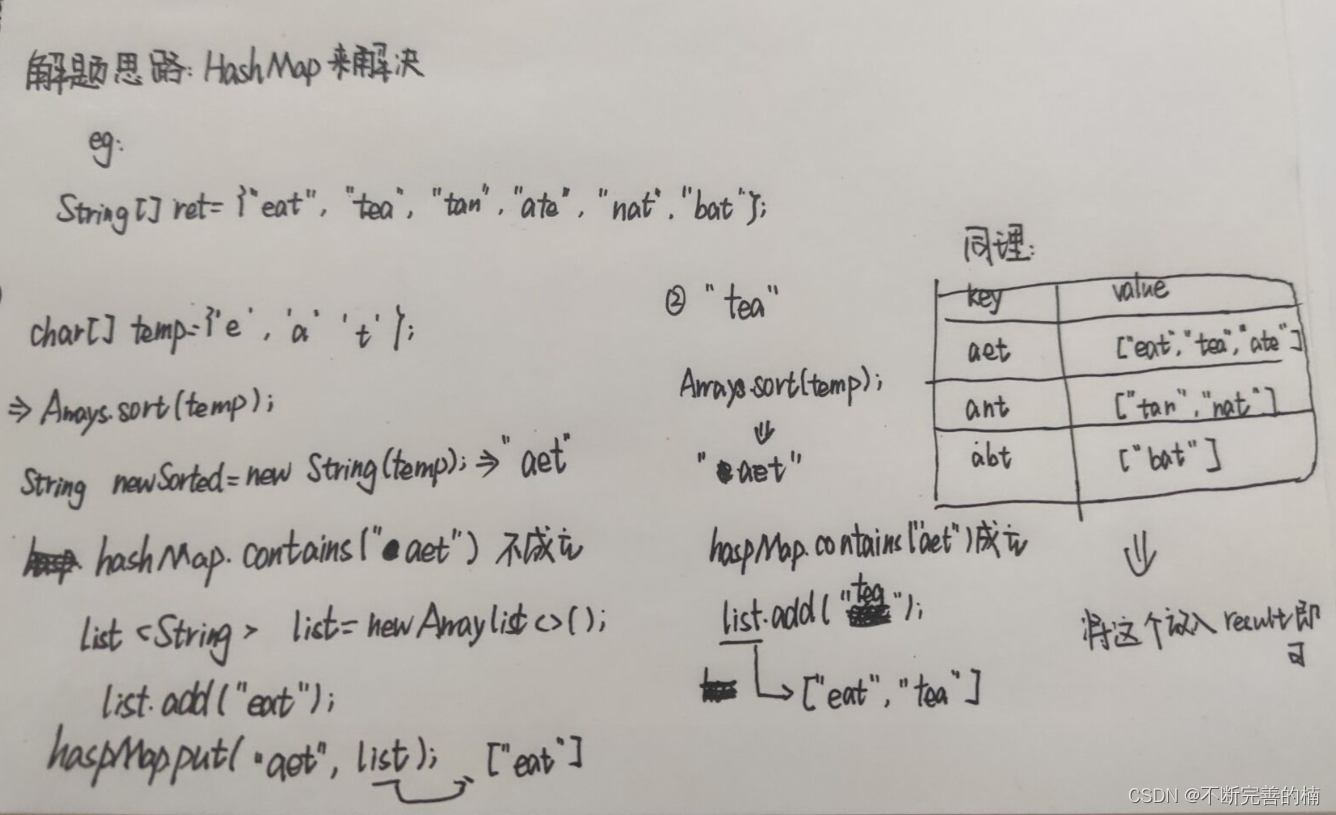 解题思路: HashMap来解决
eg:
String[] ret= {"eat", "tea", "tan", "ate", "nat", "bat"};
char[] temp={'e', 'a' 't'};
⇒ Arrays.sort(temp);
String newSorted=new String(temp); ⇒ "aet"
hashMap.contains("aet") 不成立
list <String> list=new Arraylist<>();
list.add("eat");
haspMap put("aet", list); ["eat"]
② "tea"
Arrays.sort(temp);
⇓
"aet"
haspMap.contains("aet")成立
list.add("tea");
["eat","tea"]
同理:
key value
aet ["eat","tea","ate"]
ant ["tan","nat"]
abt ["bat"]
⇓
将这个放入 result即
可
CSDN @不断完善的楠